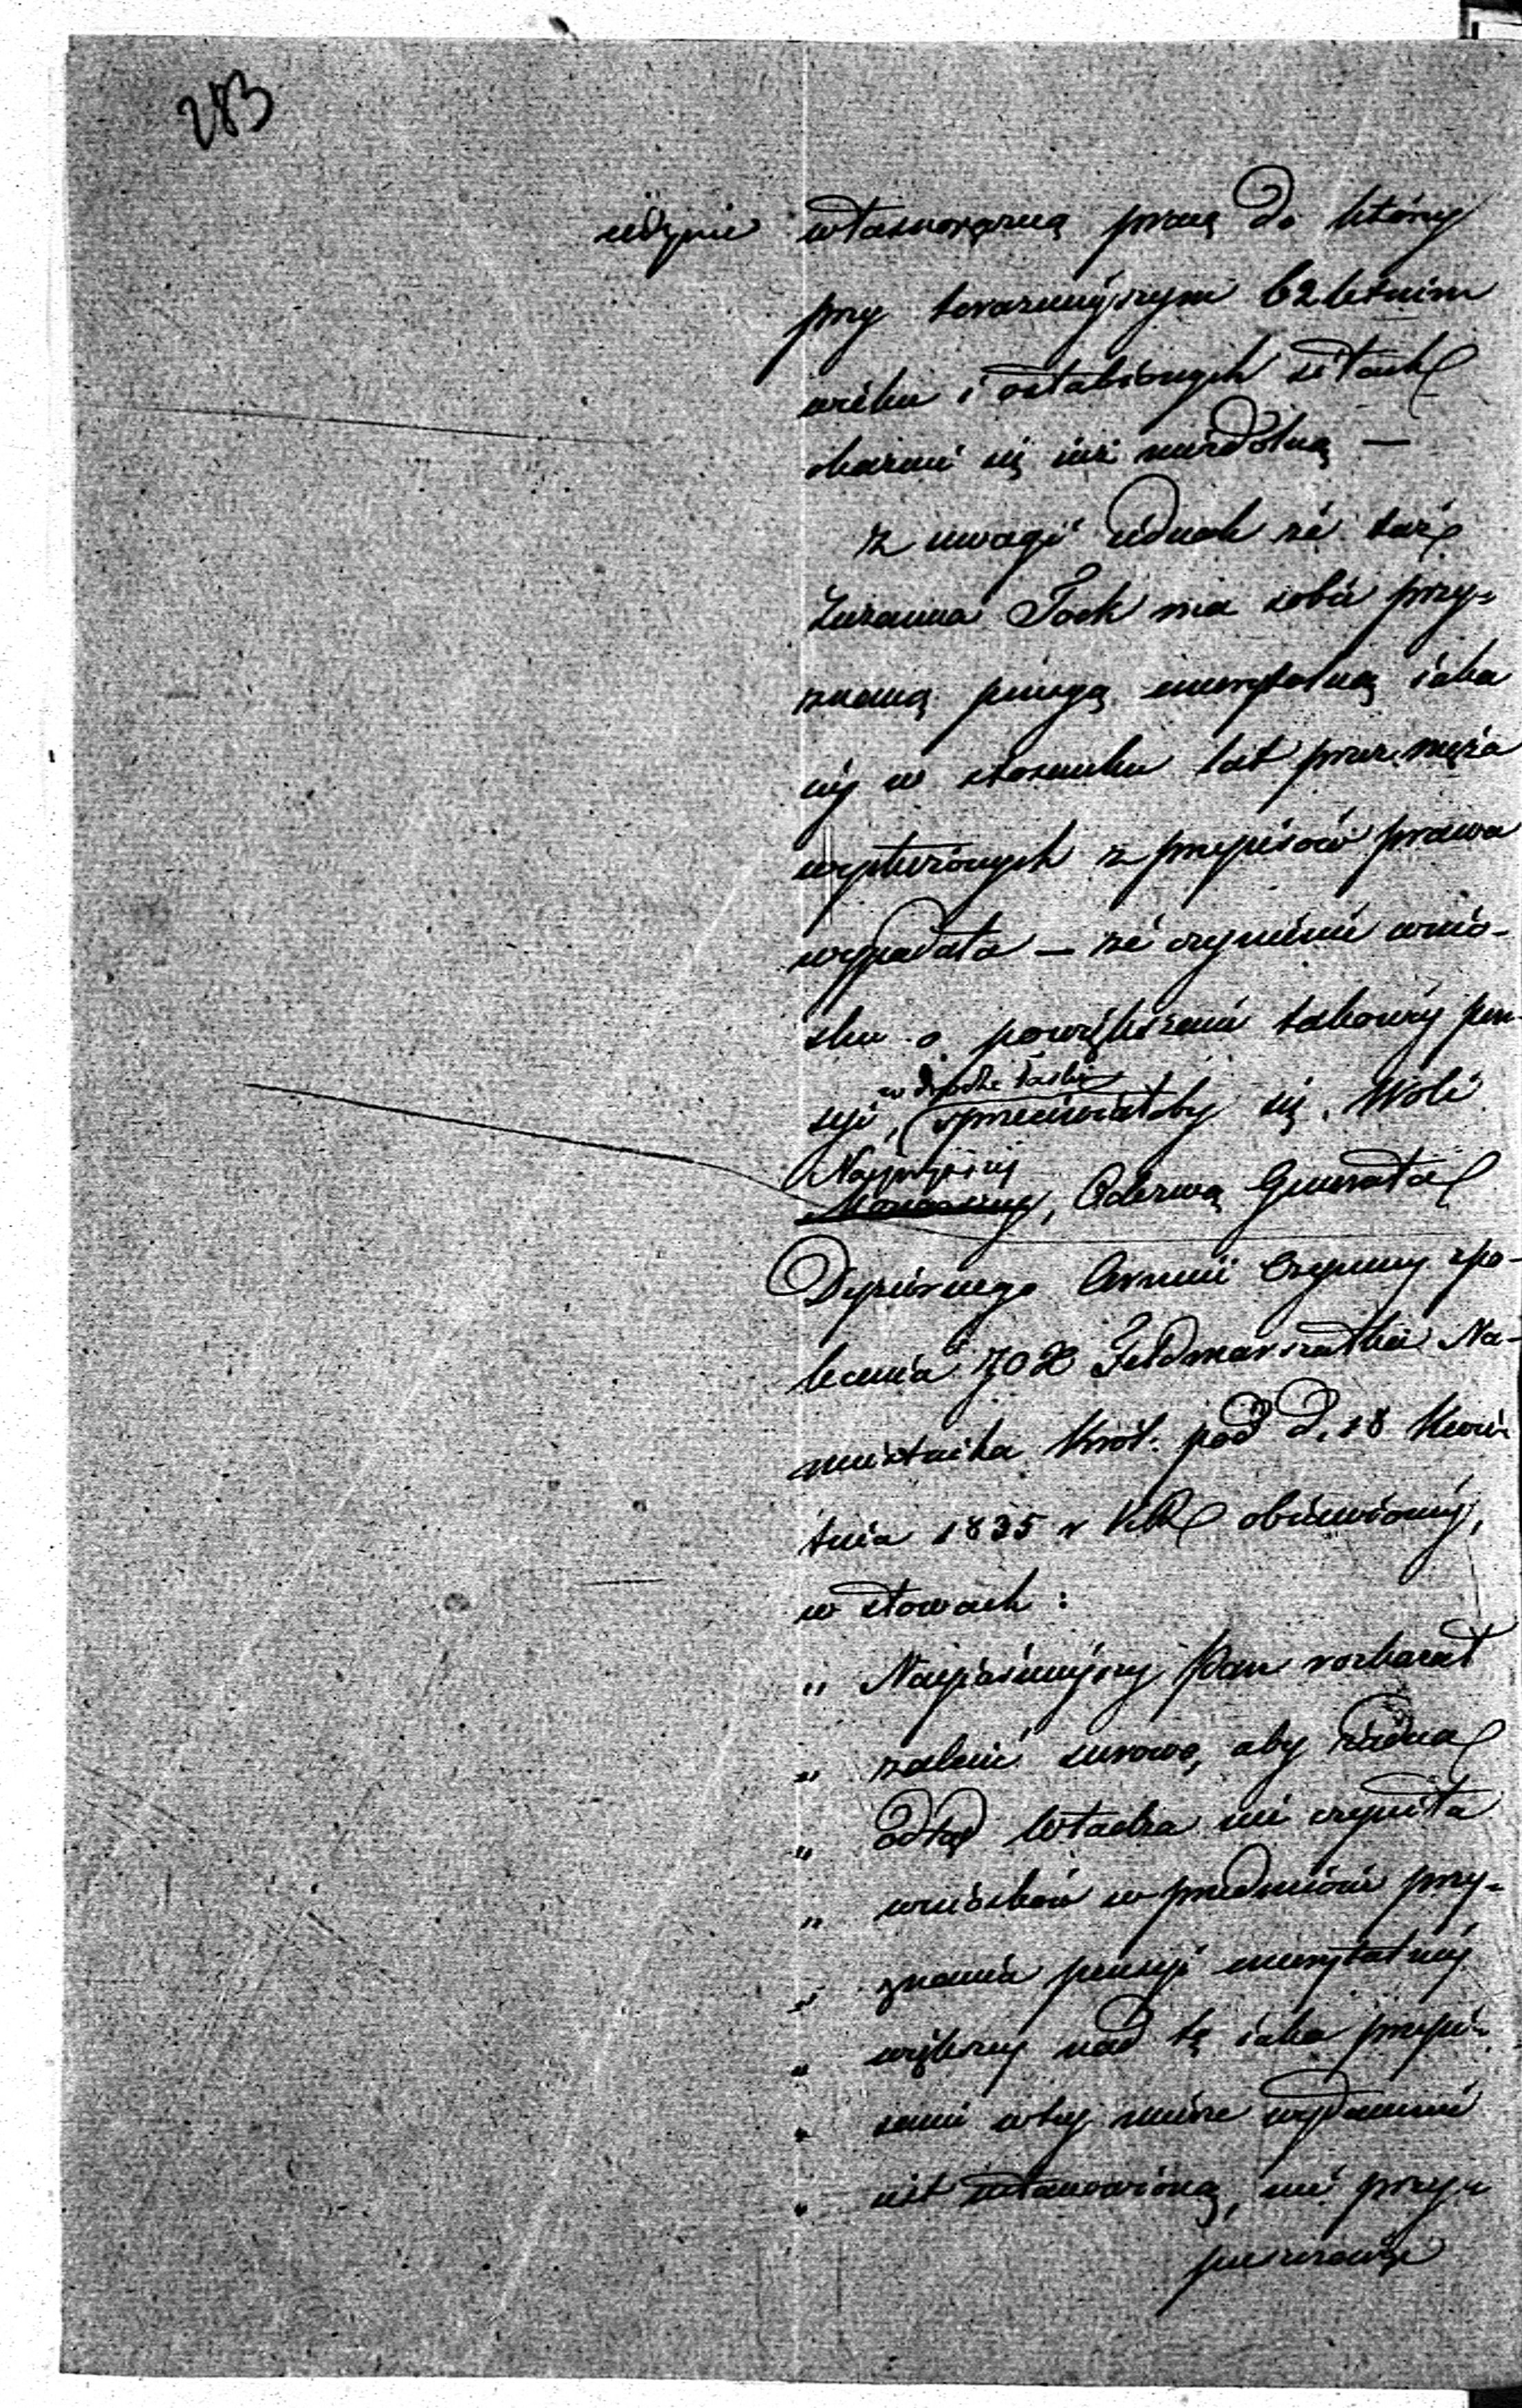 283
jedynie własnoręczną pracą do któréy
przy teraznieyszym 62 letnim
wieku i osłabionych siłach
okazuie się iuż niezdolną —
z uwagi iednak że taż
Zuzanna Fock ma sobie przy-
znaną pensyą emerytalną iaka
iéy w stosunku lat przez męża
wysłużonych z przepisów prawa
wypadała — że czynienie wnio-
sku o powiększenie takowéy pen-
syi, w drodze łaski sprzeciwiałoby się Woli
Najwyższéy
, Odezwą Generała
Dyżurnego Armii Czynnéy z po-
lecenia JO X Feldmarszałka Na-
miestnika Król. pod d. 18 Kwie-
tnia 1835 r KR obiawionéy,
w słowach:
„ Nayiaśnieyszy Pan rozkazał
„ zalecić surowo, aby żadna
„ odtąd Władza nie czyniła
„ wniosków w przedmiocie przy-
„ znania pensyi emerytalnéy
„ większéy nad tę iaka przepi-
„ sami w téy mierze wydanemi
„ iest ustanowioną, nie przy-
puszczaiąc